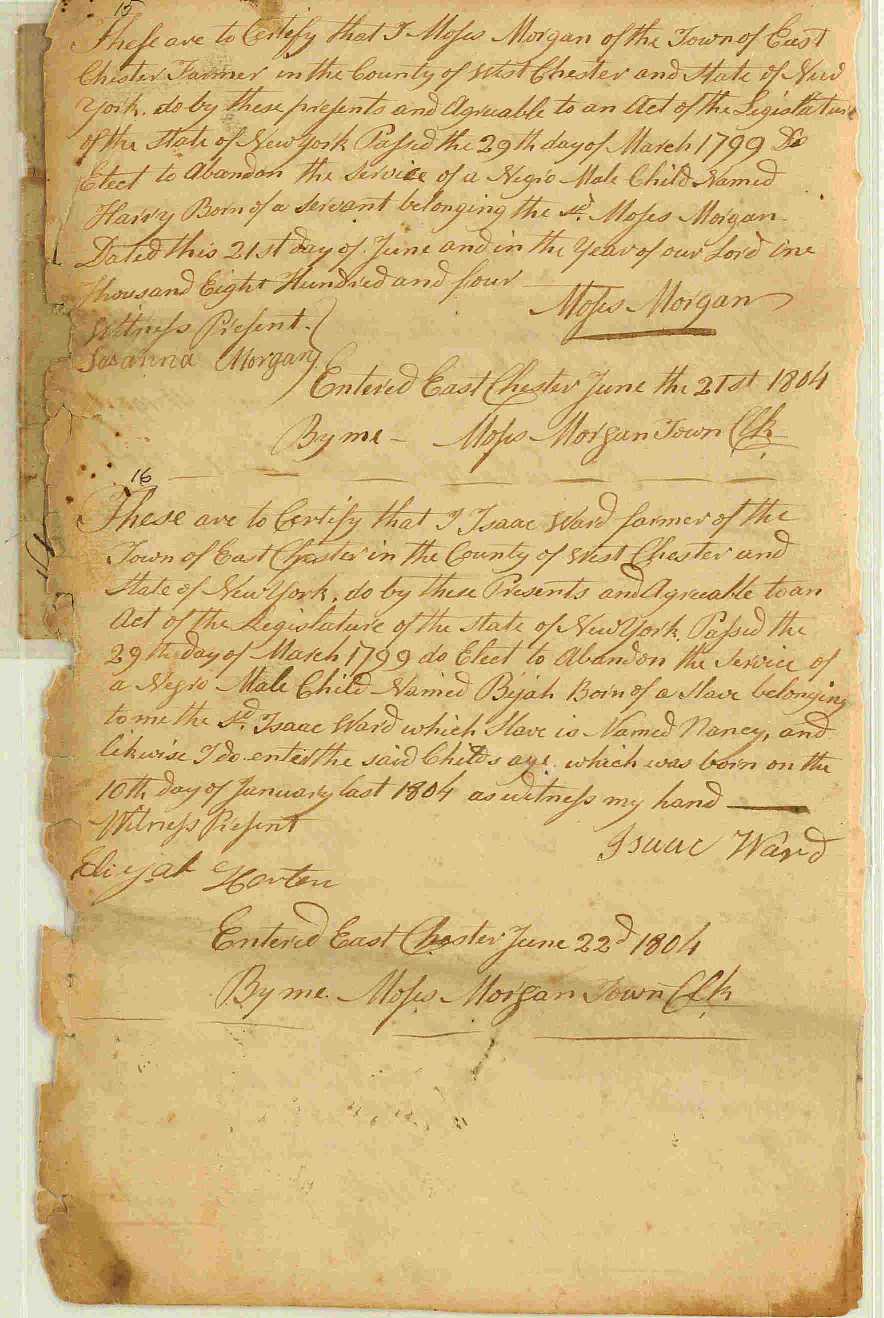 15
These are to Certify that I Moses Morgan of the Town of East
Chester Farmer in the County of West Chester and State of New
York. do by these presents and Agreable to an Act of the Legislature
of the State of New York Passed the 29th day of March 1799 Do
Elect to Abandon the Service of a Negro Male Child Named
Harry Born of a Servant belonging the sd. Moses Morgan.
Dated this 21st day of June and in the Year of our Lord one
thousand Eight Hundred and four
Moses Morgan
Wittness Present.
Susanna Morgan
Entered East Chester June the 21st 1804
By me - Moses Morgan Town Clk
16
These are to Certify that I Isaac Ward farmer of the
Town of East Chester in the County of West Chester and
State of New York, do by these Presents and Agreeable to an
Act of the Legislature of the State of New York Passed the
29th day of March 1799 do Elect to Abandon the Service of
a Negro Male Child Named Bijah Born of a Slave belonging
to me the sd. Isaac Ward which Slave is Named Nancy, and
likwise I do enter the said Childs age. which was born on the
10th day of January last 1804 as witness my hand
Witness Present
Isaac Ward
Elijah Horten
Entered East Chester June 22d 1804
By me. Moses Morgan Town Clk